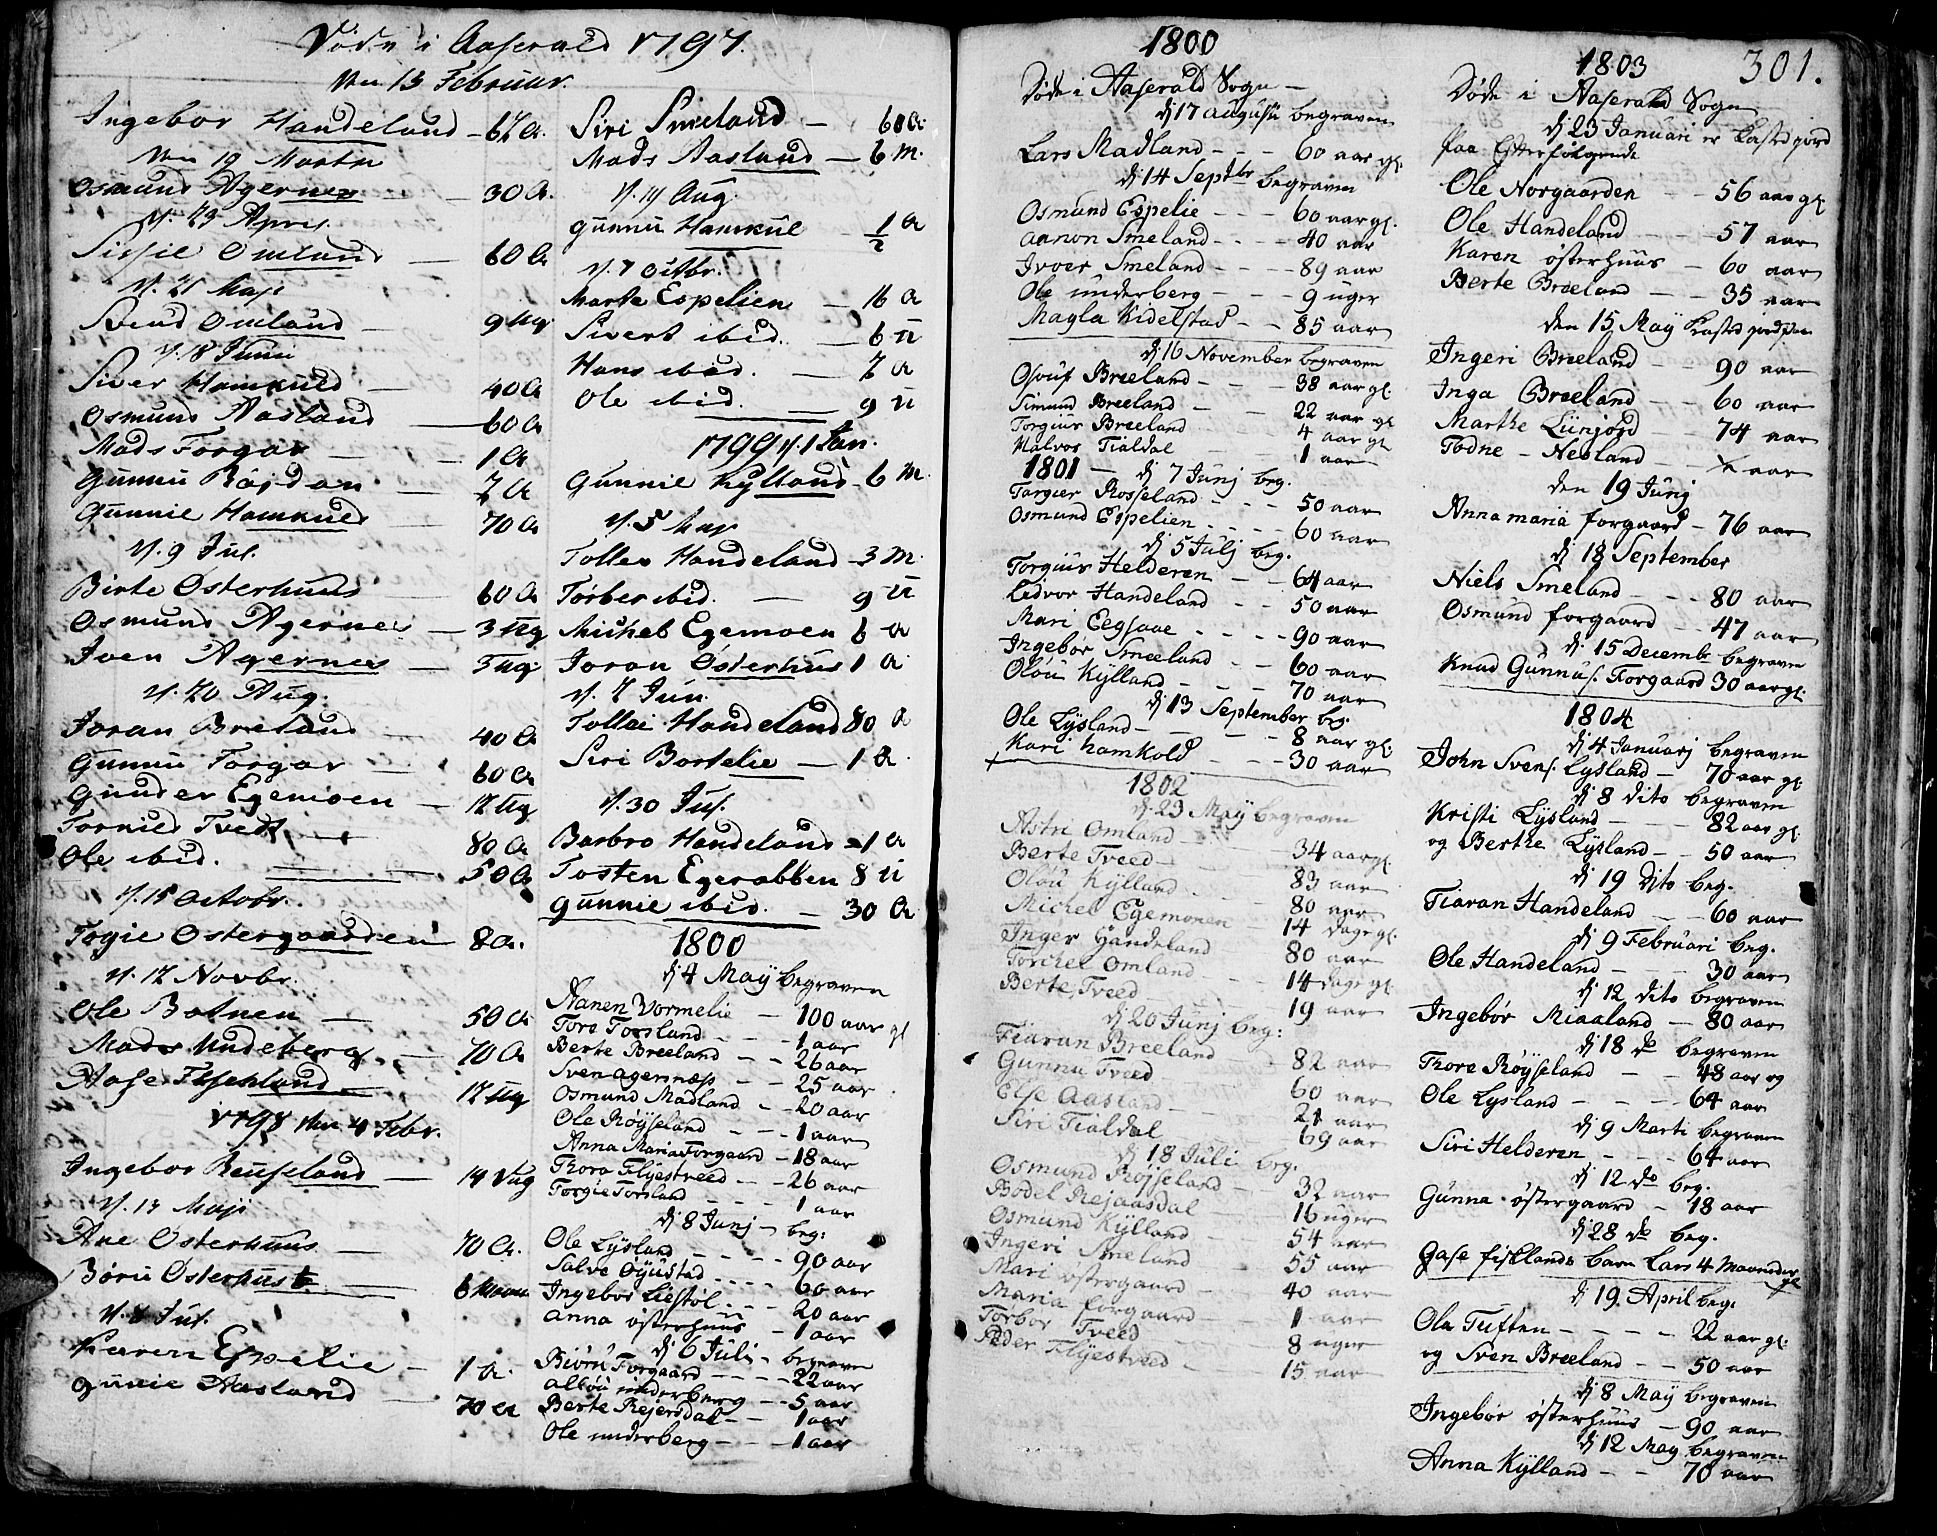 Døde i Aaserald 1797.
den 13 Februar.
Ingebor Handeland - 67 A.
den 19 Martii
Osmund Agernes - 30 A.
d. 23 April
Sissie Omland - 60 A
d. 21 Maji
Svend Omland - 9 Ug
d. 8 Junii
Siver Hamkuld - 40 A
Osmund Aasland - 60 A
Mads Forgar - 1 A
Gunnu Røisdan - 7 A
Gunnie Hamkuld - 70 A
d. 9 Jul.
Birte Østerhuus - 60 A
Osmund Agernes - 3 Ug
Iven Agernes - 3 Ug
d. 20 Aug.
Joran Breland - 40 A
Gunnu Forgar - 60 A
Gunder Egemoen - 12 Ug
Tornild Tved - 80 A
Ole ibid. - 50 A
d. 15 Octobr.
Togie Ostergaarden 8 A.
d. 12 Novbr.
Ole Botnen - 50 A
Mads Undeberg - 70 A
Aase Fischland - 12 Ug
1798 den 4 Febr.
Ingebor Reuseland - 14 Ug
d. 13 Maji
Ane Osterhuus - 70 A.
Børu Osterhus - 6 Maan
d. 8 Jul.
Karen Espelie - 1 A.
Gunie Aasland - 70 A
Siri Smeland - 60 A.
Mads Aasland - 6 M.
d. 19 Aug.
Gunnu Hamkul - 1/2 A
d. 7 Octbr.
Marte Espelien - 16 A
Sivert ibid. - 6 U
Hans ibid. - 7 A
Ole ibid. - 9 U
1799 d. 1 Jan.
Gunnie Kylland - 6 M.
d. 5 May
Tollex Handeland - 3 M.
Torber ibid. - 9 U
Michel Egemoen 6 A
Joran Osterhus 1 A
d. 2 Jun.
Tollei Handeland 80 A
Siri Bortelie - 1 A.
d. 30 Jul.
Barbro Handeland - 1 A
Tosten Egerabben 8 U
Gunnie ibid. - 30 A.
1800
dj 4 Maÿ begraven
Aanen Vormelie - 100 aar gl
Tore Torsland - 1 aar
Berte Breeland - - 26 aar
Sven agernæs - - 25 aar
Osmund Madland - 20 aar
Ole Røÿseland - - 1 aar
Anna Maria Forgaard - 18 aar
Thora Flÿestveed - - 26 aar
Torgie Torsland - - 1 aar
dj 8 Junj - beg:
Ole Lÿsland - - - 90 aar
Salve Øÿustad - - - 60 aar
Ingebor Liestøl - - - 20 aar
Anna østerhuus - 1 aar
dj 6 Julj - begraven
Biørn Forgaard - - - - 22 aar
Albou underberg - - 5 aar
Berte Rejersdal - - 1 aar
Ole underberg - - - 1 aar
1800
Døde i Aaserald Sogn -
dj 17 augusti begraven
Lars Madland - - - 60 aar gl.
dj 14 Septbr begraven
Osmund Espelie - - - 60 aar gl.
Aanon Smeland - - - 40 aar
Iver Smeland - - - 89 aar
Ole underberg - - - 9 uger
Magla Kidelstad - - 85 aar
dj 16 November begraven
Osouf Breeland - - - 38 aar gl.
Simund Breeland - - 22 aar gl
Torgius Breeland - - 4 aar gl
Halvos Tialdal - - 1 aar
1801 - dj 7 Junj beg.
Targier Rosseland - - - 50 aar
Osmund Espelien - - - 60 aar
dj 5 Julj beg.
Torgius Helderen - - 64 aar
Lidvor Handeland - - 50 aar
Mari Eegsaae - - - - 90 aar
Ingebor Smeeland - - 60 aar
Oløu Kÿlland - - - 70 aar
dj 13 September beg.
Ole Lÿsland - - - 8 aar gl.
Kari Hamkold - - - 30 aar
1802
dj. 23 Maÿ begraven
Astri Omland - 34 aar gl.
Berte Tveed - 83 aar
Oløu Kÿlland - 80 aar
Michel Egemonen - 14 dage gl.
Inger Handeland - 80 aar
Torchel Omland - 14 dage gl
Berte Tveed 19 aar
dj 20 Junj beg:
Tiaran Breeland 82 aar
Gunnu Tveed 60 aar
Else Aasland - 21 aar
Siri Tialdal 69 aar
dj 18 Juli beg.
Osmund Røjseland - 32 aar
Bodel Rejaasdal - 16 uger
Osmund Kÿlland - 54 aar
Ingeri Smeland 55 aar
Mari østergaard - 40 aar
Maria forgaard - 1 aar
Torbor Tveed - 8 uger
Peder Flÿestveed - 15 aar
1803 301.
Døde i Aaserald Sogn
dj 23 Januari er Kasted jord
paa Efterfølgende
Ole Norgaarden - - 56 aar gl.
Ole Handeland - - 57 aar
Karen østerhuus - 60 aar
Berte Breeland - - 35 aar
den 15 Maÿ Kasted jord paa
Ingeri Breeland - - 90 aar
Inga Breeland - - 60 aar
Marthe Liinjord - - 74 aar
Todne - Neoland - - aar
den 19 Junj
Anna maria forgaard - 76 aar
dj 18 September
Niels Smeland - - - 80 aar
Osmund forgaard - - 47 aar
dj. 15 Decembr begraven
Knud Gunnus. Forgaard 30 aar gl.
1804
dj 4 Januarj begraven
John Svens. Lÿsland - 70 aar gl
dj 8 dito begraven
Kristi Lÿsland - - 82 aar gl.
og Berthe Lÿsland - - 50 aar
dj 19 Dito beg.
Tiaran Handeland - - 60 aar
dj 9 Februari beg.
Ole Handeland - - - 30 aar
dj 12 dito begraven
Ingebør Miaaland - 80 aar
dj 18 do begraven
Thore Røÿseland - - 48 aar og
Ole Lÿsland - - - - 64 aar
dj 9 Marti begraven
Siri Helderen - - - 64 aar
dj 12 do beg.
Gunna østergaard - 18 aar
dj 28 do beg.
Gase fisklands barn Lars 4 Maaneder gl
dj 19 April beg:
Ola Tuften - - - - - 22 aar gl.
og Sven Breeland - - 50 aar
dj 8 Maÿ begraven
Ingebør østerhuus - 90 aar
dj 12 Maÿ begraven
Anna Kÿlland - - 70 aar